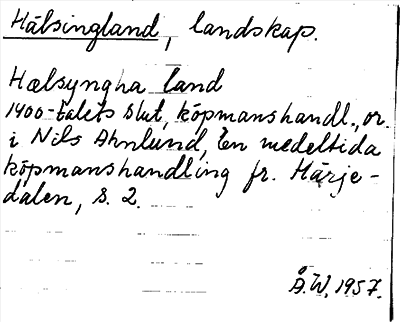 Hälsingland, landskap.
Hælsyngha land
1400-talets slut, köpmanshandl., or.
i Nils Ahnlund, En medeltida
köpmanshandling fr. Härje-
dalen, s. 2.
Å.W. 1957.